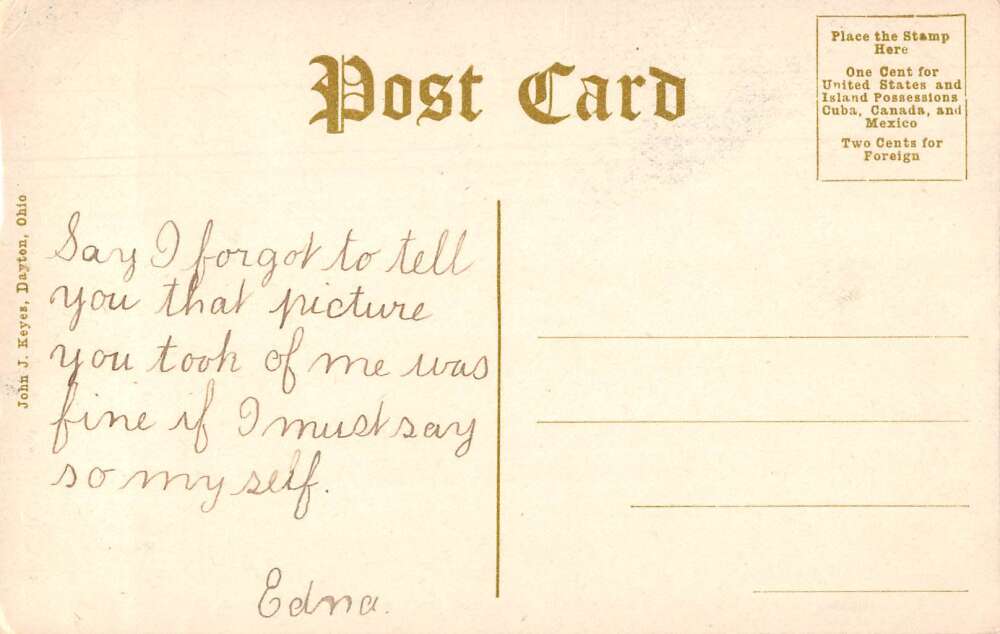 Post Card
Place the Stamp
Here
One Cent for
United States and
Island Possessions
Cuba, Canada, and
Mexico
Two Cents for
Foreign
John J. Keyes, Dayton, Ohio
Say I forgot to tell
you that picture
you took of me was
fine if I must say
so my self.
Edna.